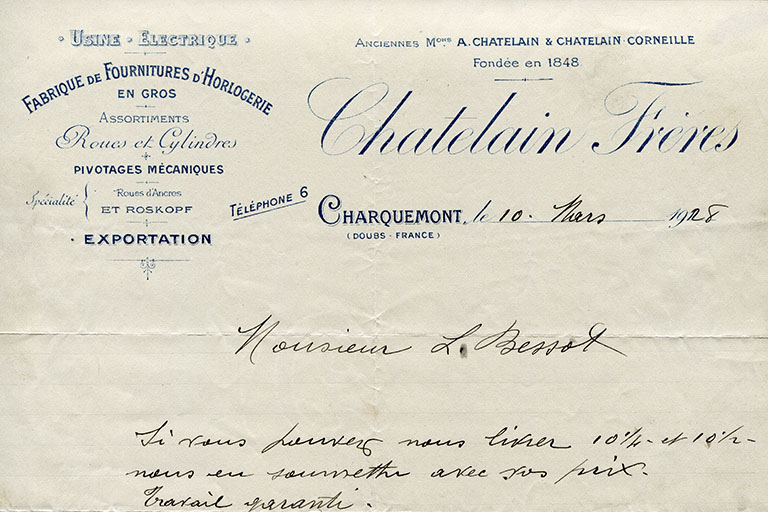 · USINE · ELECTRIQUE ·
FABRIQUE DE FOURNITURES D'HORLOGERIE
EN GROS
ASSORTIMENTS
Roues et Cylindres
PIVOTAGES MÉCANIQUES
Spécialité { Roues d'Ancres
ET ROSKOPF
· EXPORTATION
ANCIENNES MONS A. CHATELAIN & CHATELAIN-CORNEILLE
Fondée en 1848
Chatelain Frères
TÉLÉPHONE 6
CHARQUEMONT, le 10. Mars 1928
(DOUBS - FRANCE)
Monsieur L. Bessot
Si vous pouvez nous livrer 10¼- et 10½-
nous en soumettre avec vos prix.
Travail garanti.